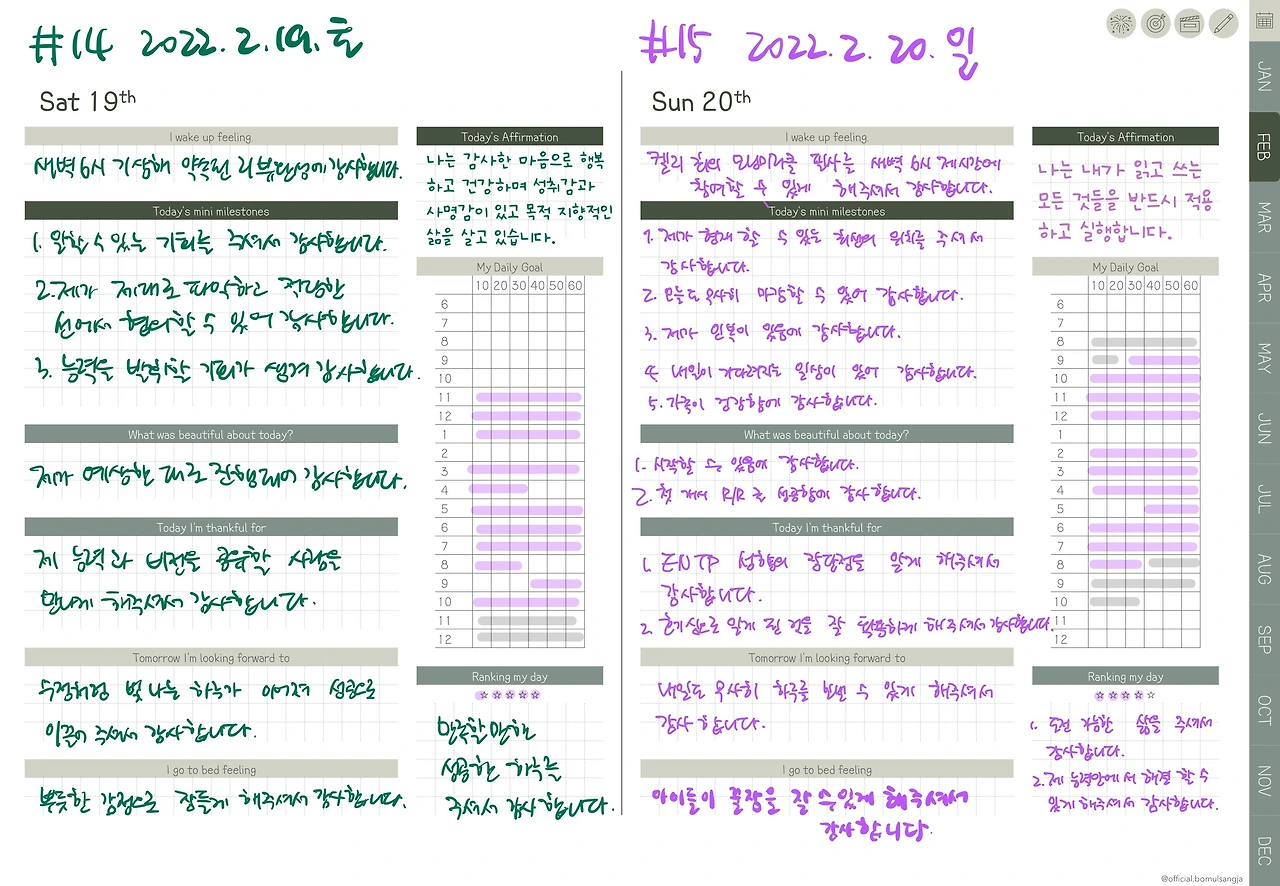 #14 2022.2.19.토
Sat 19th
I wake up feeling.
새벽 6시 기상해 약속된 리뷰 달성에 감사합니다.
Today's mini milestones
1. 말할 수 있는 기회를 주셔서 감사합니다.
2. 제가 제대로 파악하고 적당한
선에서 협의할 수 있어 감사합니다.
3. 능력을 발휘할 기회가 생겨 감사합니다.
What was beautiful about today?
제가 예상한 대로 진행되어 감사합니다.
Today I'm thankful for
제 능력과 비전을 공유할 사람을
만나게 해주셔서 감사합니다.
Tomorrow I'm looking forward to
수정처럼 빛나는 하루가 이어져 성공으로
이끌어 주셔서 감사합니다.
I go to bed feeling
뿌듯한 감정으로 잠들게 해주셔서 감사합니다.
Today's Affirmation
나는 감사한 마음으로 행복
하고 건강하며 성취감과
사명감이 있고 목적 지향적인
삶을 살고 있습니다.
My Daily Goal
10 20 30 40 50 60
6
7
8
9
10
11
12
1
2
3
4
5
6
7
8
9
10
11
12
Ranking my day
만족할 만한
성공한 하루를
주셔서 감사합니다.
#15 2022.2.20.일
Sun 20th
I wake up feeling.
켈리 최의 새벽 6시 제시간에
참여할 수 있게 해주셔서 감사합니다.
Today's mini milestones
1. 제가 현재 할 수 있는 최선의 위치를 주셔서
감사합니다.
2. 오늘도 무사히 마감할 수 있어 감사합니다.
3. 제가 인복이 있음에 감사합니다.
4. 내일이 기다려지는 일상이 있어 감사합니다.
5. 가족이 건강함에 감사합니다.
What was beautiful about today?
1. 시작할 수 있음에 감사합니다.
2. 첫 R/R 을 성공함에 감사합니다.
Today I'm thankful for
1. ENTP 성향의 장단점을 알게 해주셔서
감사합니다.
2. 호기심으로 알게 된 것을 잘 해주셔서 감사합니다.
Tomorrow I'm looking forward to
내일도 무사히 하루를 보낼 수 있게 해주셔서
감사합니다.
I go to bed feeling
아이들이 꿀잠을 잘 수 있게 해주셔서
감사합니다.
Today's Affirmation
나는 내가 읽고 쓰는
모든 것들을 반드시 적용
하고 실행합니다.
My Daily Goal
10 20 30 40 50 60
6
7
8
9
10
11
12
1
2
3
4
5
6
7
8
9
10
11
12
Ranking my day
1. 도전 가능한 삶을 주셔서
감사합니다.
2. 제 능력안에서 해결 할 수
있게 해주셔서 감사합니다.
JAN
FEB
MAR
APR
MAY
JUN
JUL
AUG
SEP
OCT
NOV
DEC
@official.bomulsangja